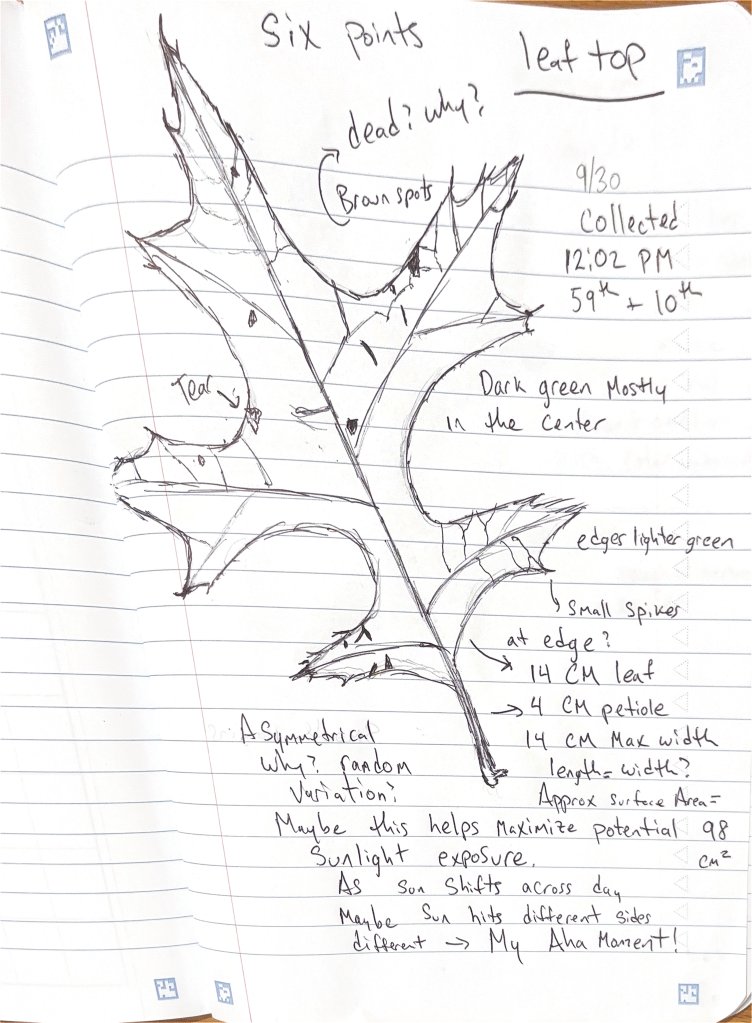 Six points
leaf top
dead? why?
Brown spots
9/30
Collected
12:02 PM
59th + 10th
Tear
Dark green Mostly
in the center
edges lighter green
small spikes
at edge?
14 CM leaf
4 CM petiole
14 CM Max width
length = width?
Approx surface Area =
98
cm²
ASymmetrical
Why? random
Variation?
Maybe this helps maximize potential
Sunlight exposure.
As sun shifts across day
Maybe Sun hits different sides
different → My Aha Moment!